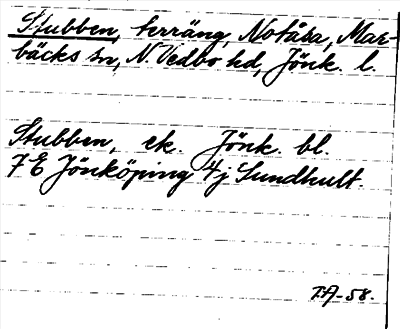 Stubben, terräng, Notåsa, Mar-
bäcks sn, N. Vedbo hd, Jönk. l.
Stubben, ek. Jönk. bl.
7 E Jönköping 4j Sundhult.
T.A-58.